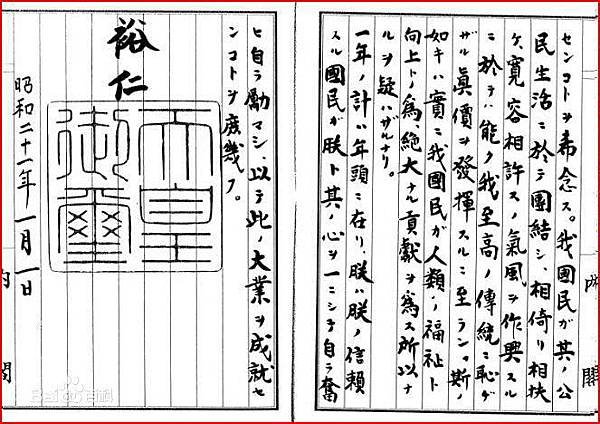 内閣
センコトヲ希念ス。我國民ガ其ノ公
民生活ニ於テ團結シ、相倚リ相扶
ケ、寛容相許スノ氣風ヲ作興スル
ニ於テハ能ク我至高ノ傳統ニ恥ヂ
ザル眞價ヲ發揮スルニ至ラン。斯ノ
如キハ實ニ我國民ガ人類ノ福祉ト
向上トノ爲、絶大ナル貢獻ヲ爲ス所以ナ
ルヲ疑ハザルナリ。
一年ノ計ハ年頭ニ在リ、朕ハ朕ノ信賴
スル國民ガ朕ト其ノ心ヲ一ニシテ自ラ奮
ヒ自ラ勵マシ、以テ此ノ大業ヲ成就セ
ンコトヲ庶幾フ。
裕仁
天皇
御璽
昭和二十一年一月一日
内閣
Bai百科